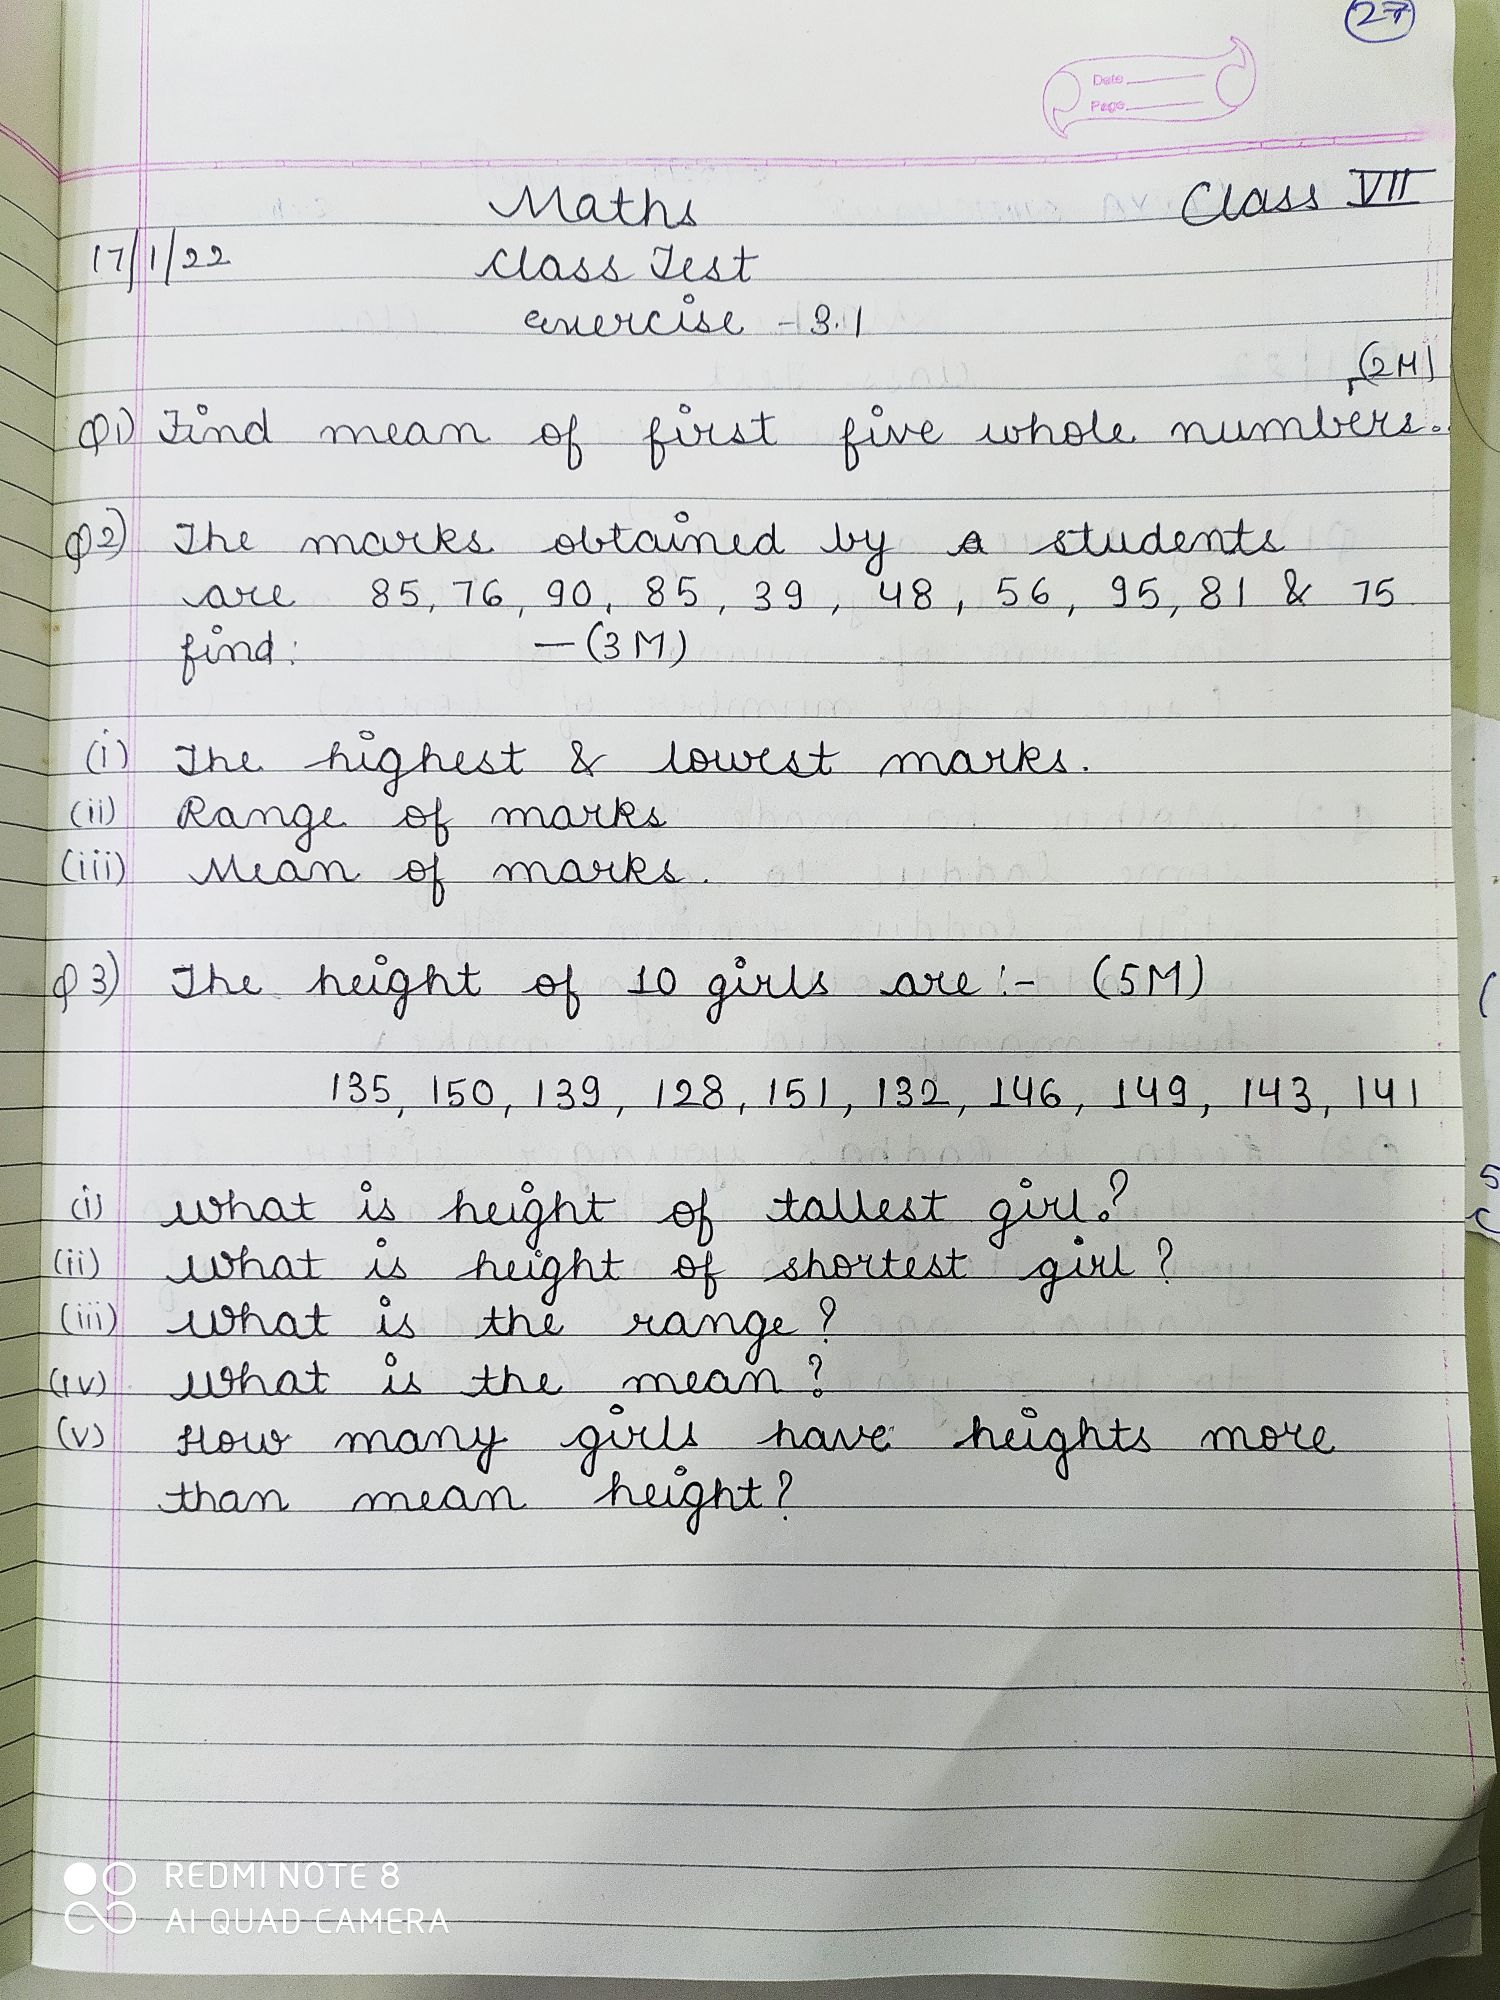 27
Date
Page
Maths
Class VII
17/1/22
Class Test
exercise - 3.1
(2M)
Q1) Find mean of first five whole numbers.
Q2) The marks obtained by a students
are 85, 76, 90, 85, 39, 48, 56, 95, 81 & 75
find: —(3M)
(i) The highest & lowest marks.
(ii) Range of marks
(iii) Mean of marks.
Q3) The height of 10 girls are :- (5M)
135, 150, 139, 128, 151, 132, 146, 149, 143, 141
(i) What is height of tallest girl?
(ii) What is height of shortest girl?
(iii) What is the range?
(iv) What is the mean?
(v) How many girls have heights more
than mean height?
REDMI NOTE 8
AI QUAD CAMERA